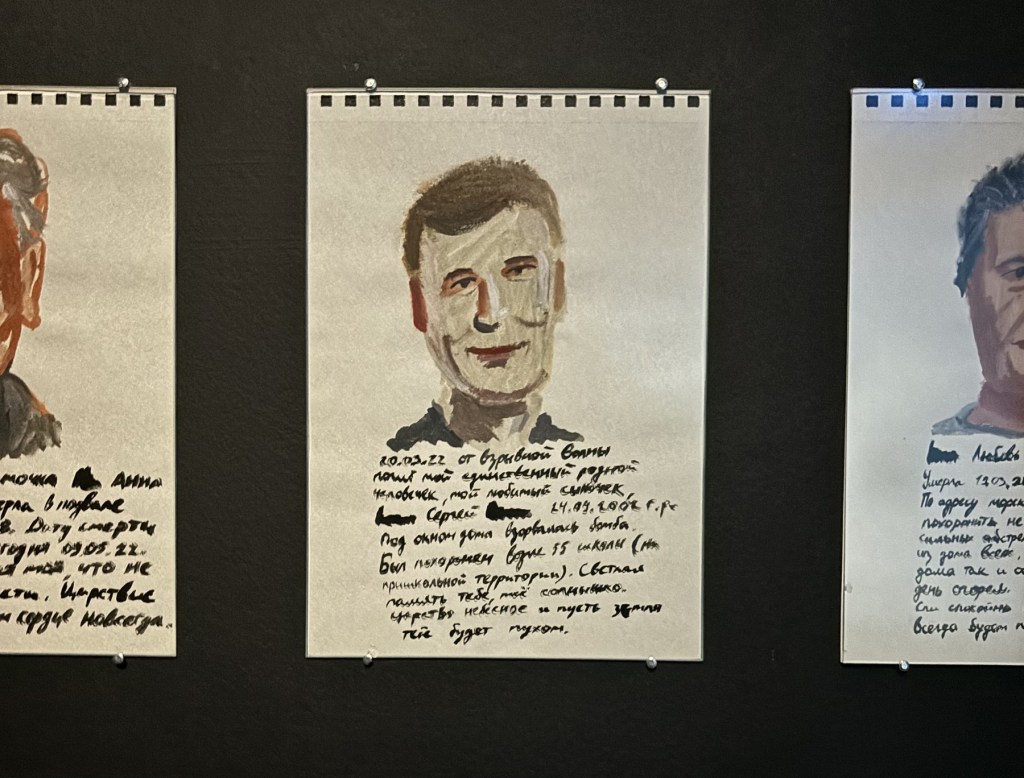 мочка Анна
ерла в подвале
8. Дату смерти
годня 09.05.22.
моя что не
Царствие
сердце навсегда.
20.03.22 от взрывной волны
погиб мой единственный родной
человечек, мой любимый сыночек,
Сергей 24.09.2002 г.р.
Под окном дома взорвалась бомба.
Был похоронен возле 55 школы (на
пришкольной территории). Светлая
память тебе, моё солнышко.
царство небесное и пусть земля
тебе будет пухом.
Любовь
Умерла 13.03.2
По адресу морск
похоронить не
сильных обстрел
из дома всех,
дома так и ос
день сгорел.
Спи спокойно
всегда будем п